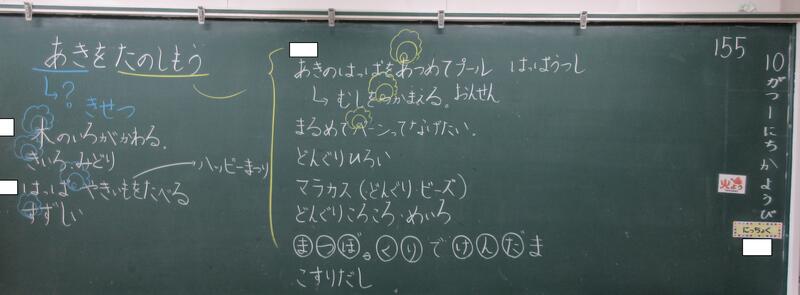 あきをたのしもう
↳?
きせつ
木のいろがかわる.
きいろ.みどり
はっぱ やきいもをたべる
すずしい
ハッピーまつり
あきのはっぱをあつめてプール はっぱうつし
↳ むしをつかまえる. おんせん
まるめてバーンってなげたい.
どんぐりひろい
マラカス(どんぐり・ビーズ)
どんぐりころころ・めいろ
まつば。くりでけんだま
こすりだし
155
10がつ一にちかようび
火よう
にっちょく